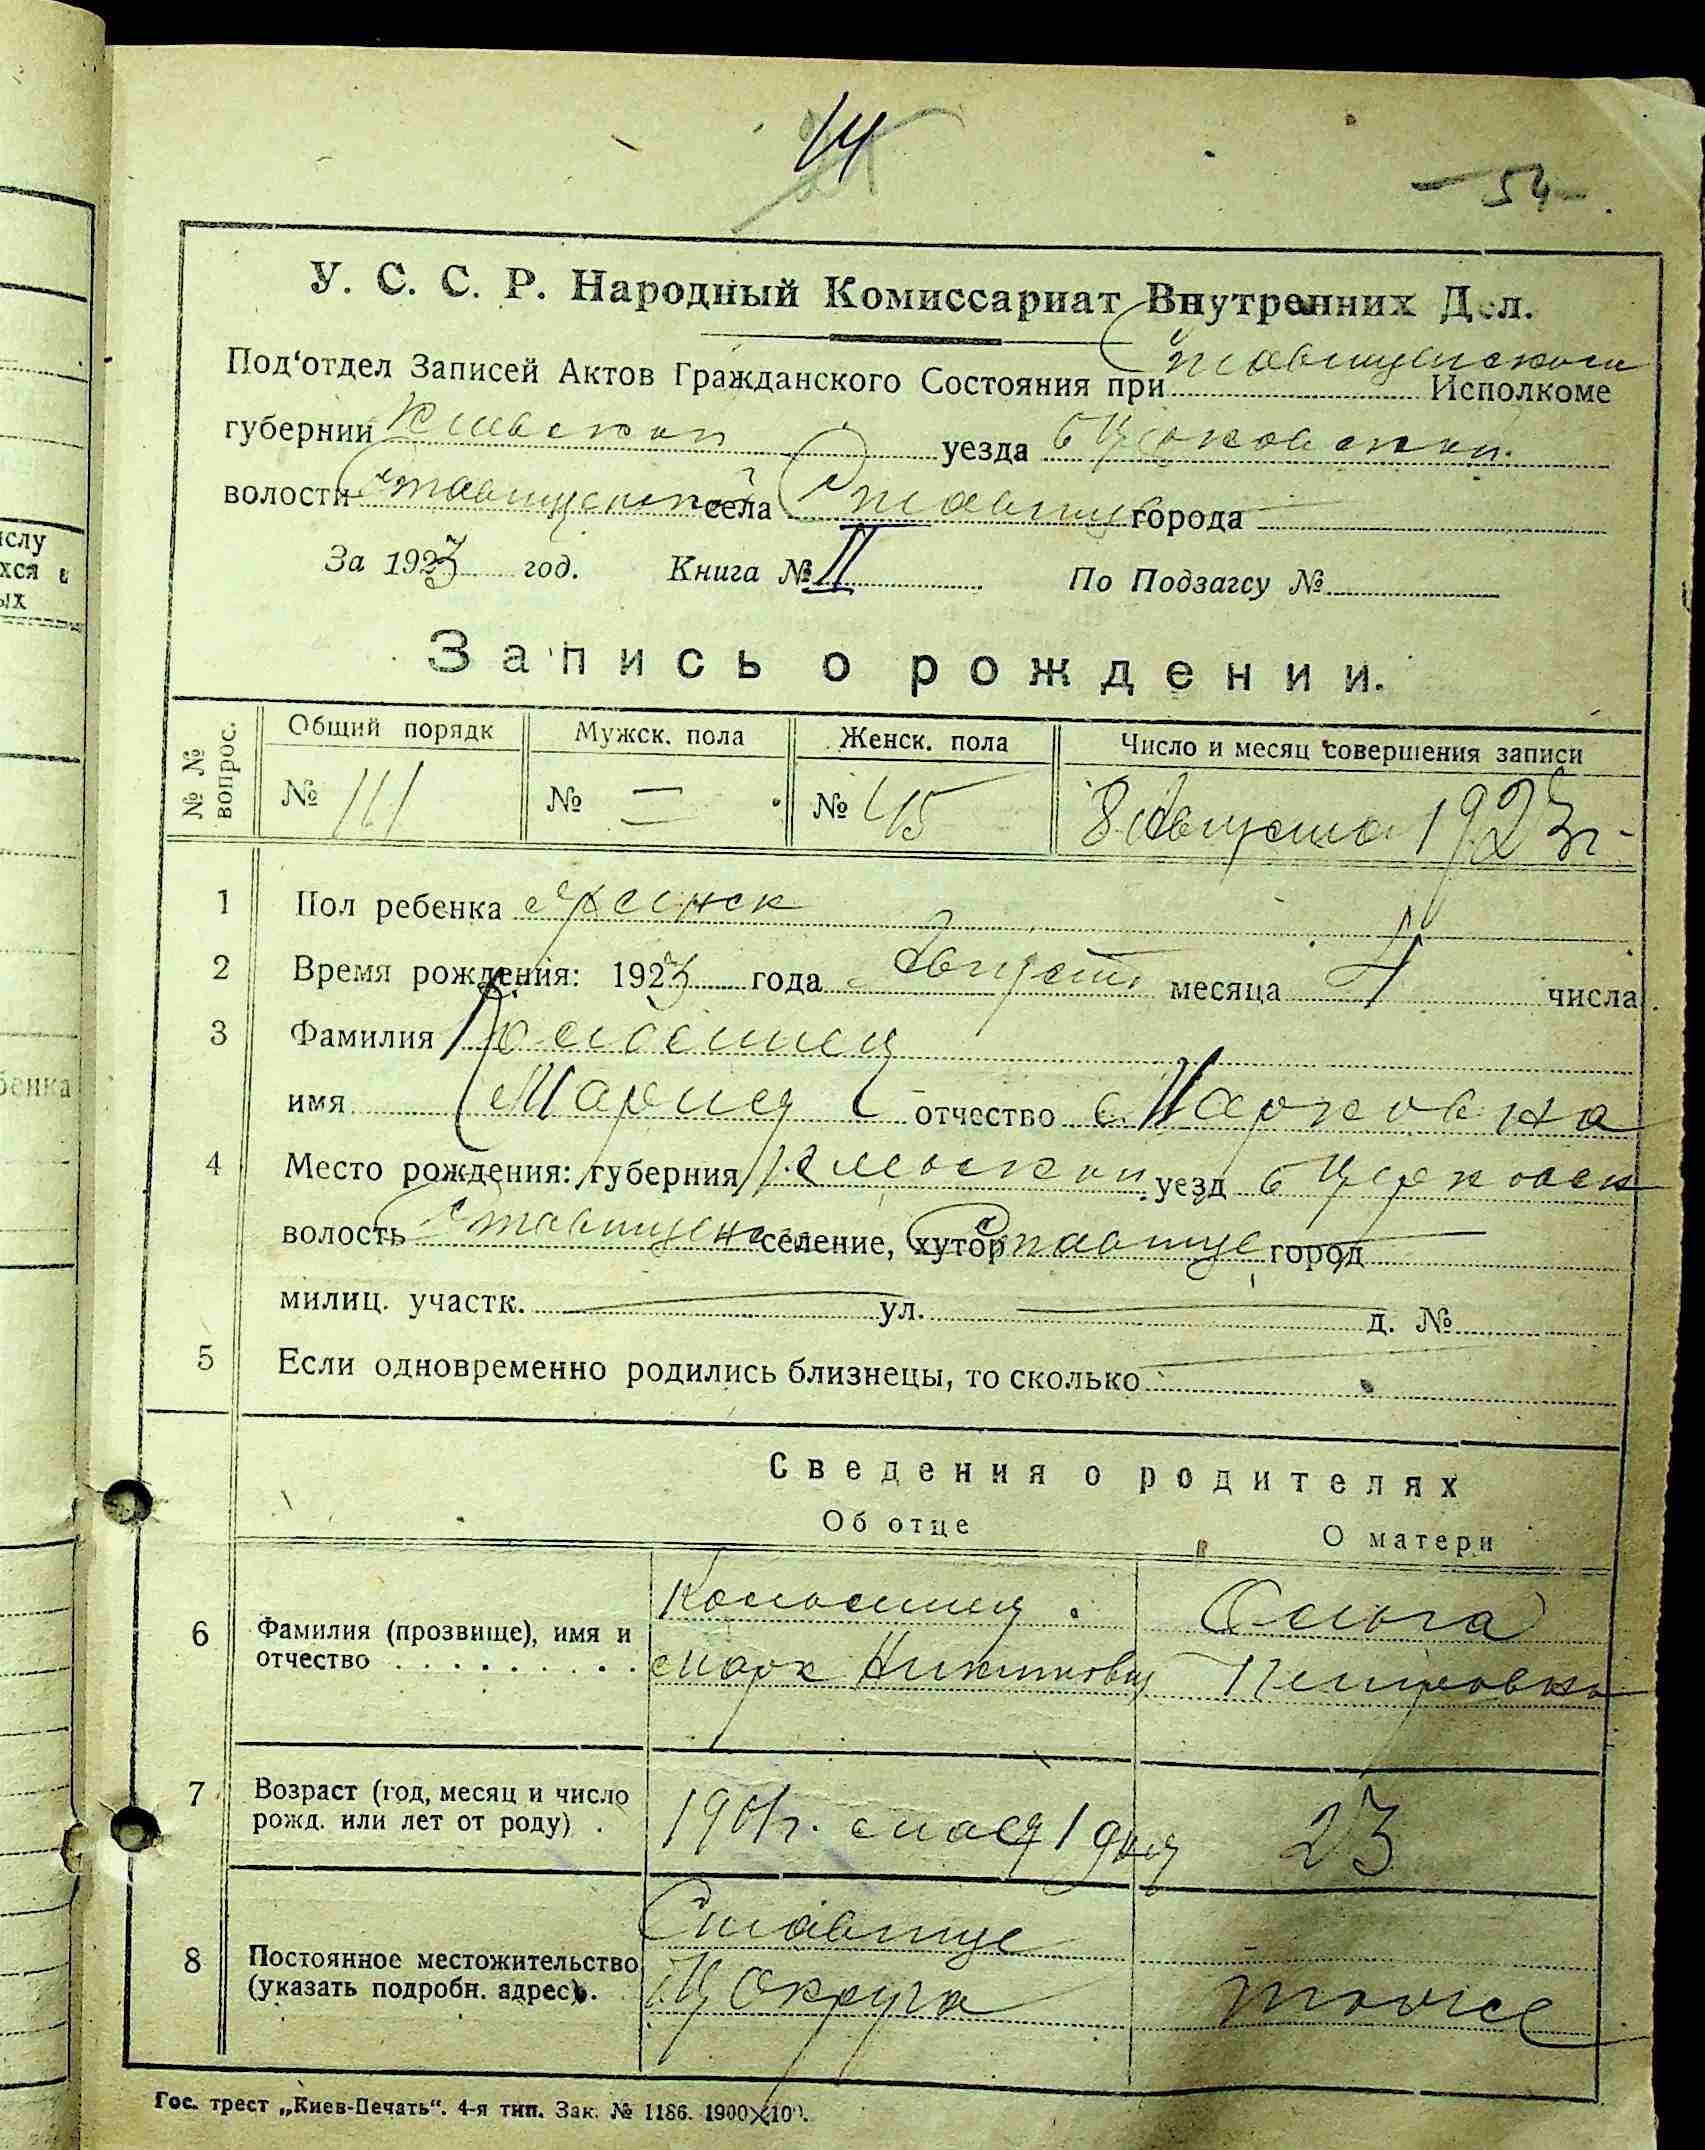 14
- 54 -
У. С. С. Р. Народный Комиссариат Внутренних Дел.
Под‘отдел Записей Актов Гражданского Состояния при Ставищенском Исполкоме
губернии Киевской уезда б Церковской
волости Ставищенской села Ставище города
За 1923 год. Книга № II По Подзагсу №
Запись о рождении.
№ № вопрос. Общий порядк Мужск. пола Женск. пола Число и месяц совершения записи
№ 111 № = № 45 8 Августа 1923 г.
1 Пол ребенка женск
2 Время рождения: 1923 года Август месяца 4 числа
3 Фамилия
имя Мария отчество Марковна
4 Место рождения: губерния Киевской уезд б Церковск
волость Ставищенс селение, хутор Ставище город
милиц. участк. ул. д. №
5 Если одновременно родились близнецы, то сколько
Сведения о родителях
Об отце О матери
6 Фамилия (прозвище), имя и Ольга
отчество . . . . . . . . . Марк Никитович Петровна
7 Возраст (год, месяц и число
рожд. или лет от роду) . 1901 г. мая 1 дня 23
8 Постоянное местожительство Ставище
(указать подробн. адрес). Б.Ц Округа тоже
Гос. трест „Киев-Печать“. 4-я тип. Зак. № 1186. 1900×100.
ислу
хся в
ых
бенка